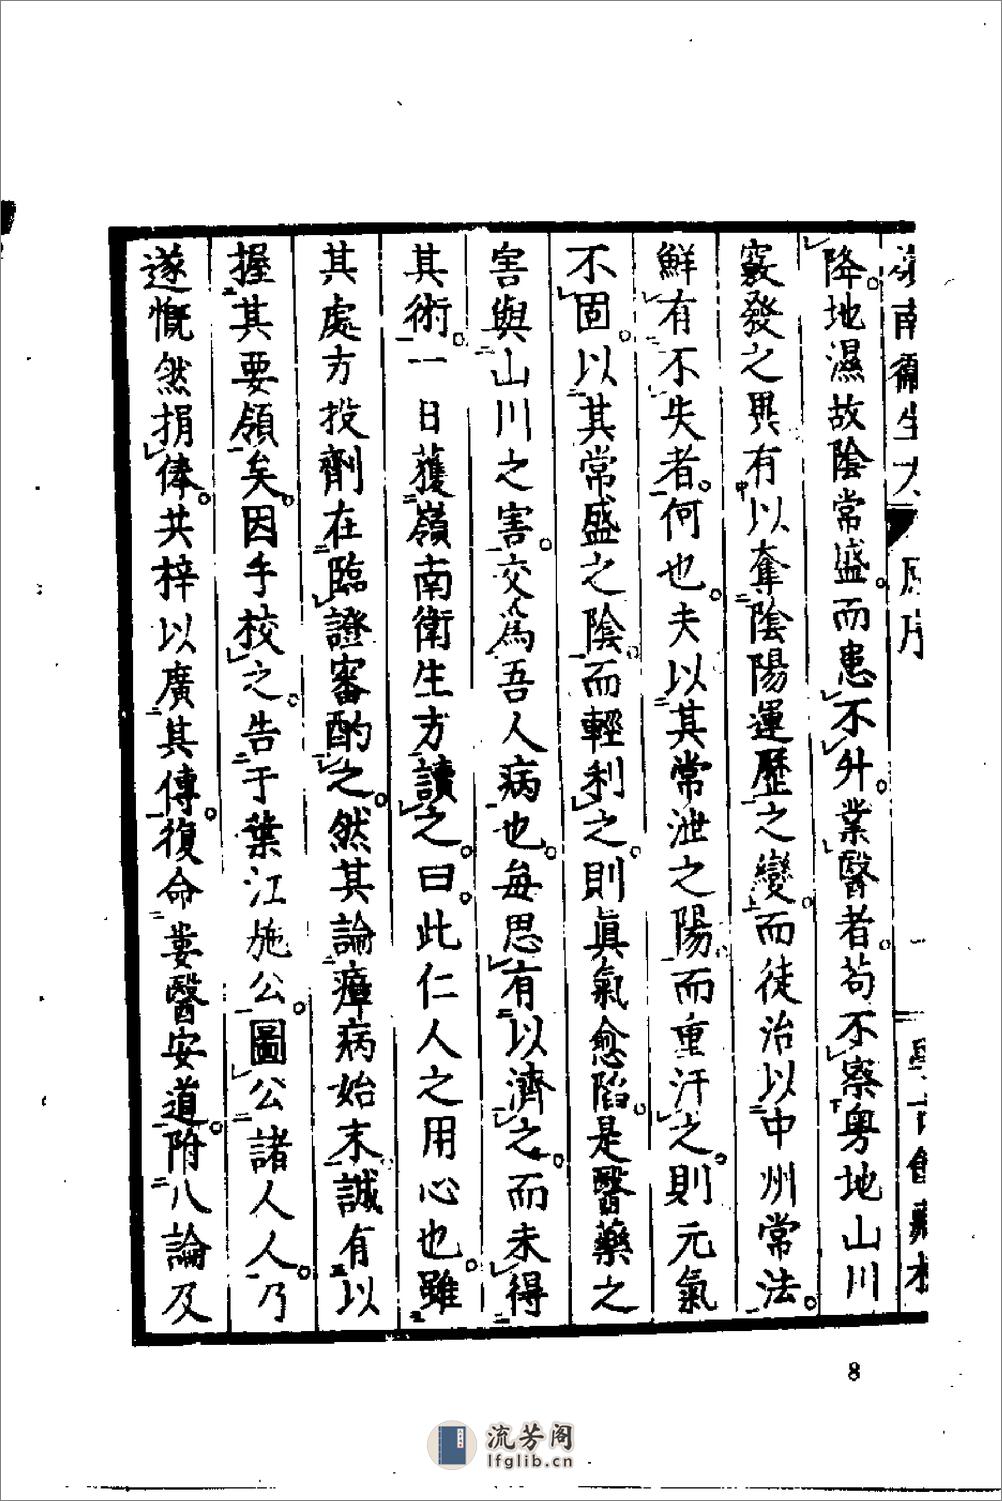 嶺南衛生方 原序 一 學古館藏板
降地濕故陰常盛而患不升業醫者苟不察粵地山川
竅發之異有以奪陰陽運歷之變而徒治以中州常法
鮮有不失者何也夫以其常泄之陽而重汗之則元氣
不固以其常盛之陰而輕利之則真氣愈陷是醫藥之
害與山川之害交為吾人病也每思有以濟之而未得
其術一日獲嶺南衛生方讀之曰此仁人之用心也雖
其處方投劑在臨證審酌之然其論瘴病始末誠有以
握其要領矣因手校之告于葉江施公圖公諸人人乃
遂慨然捐俸共梓以廣其傳復命婁醫安道附八論及
8
流芳阁
lfglib.cn